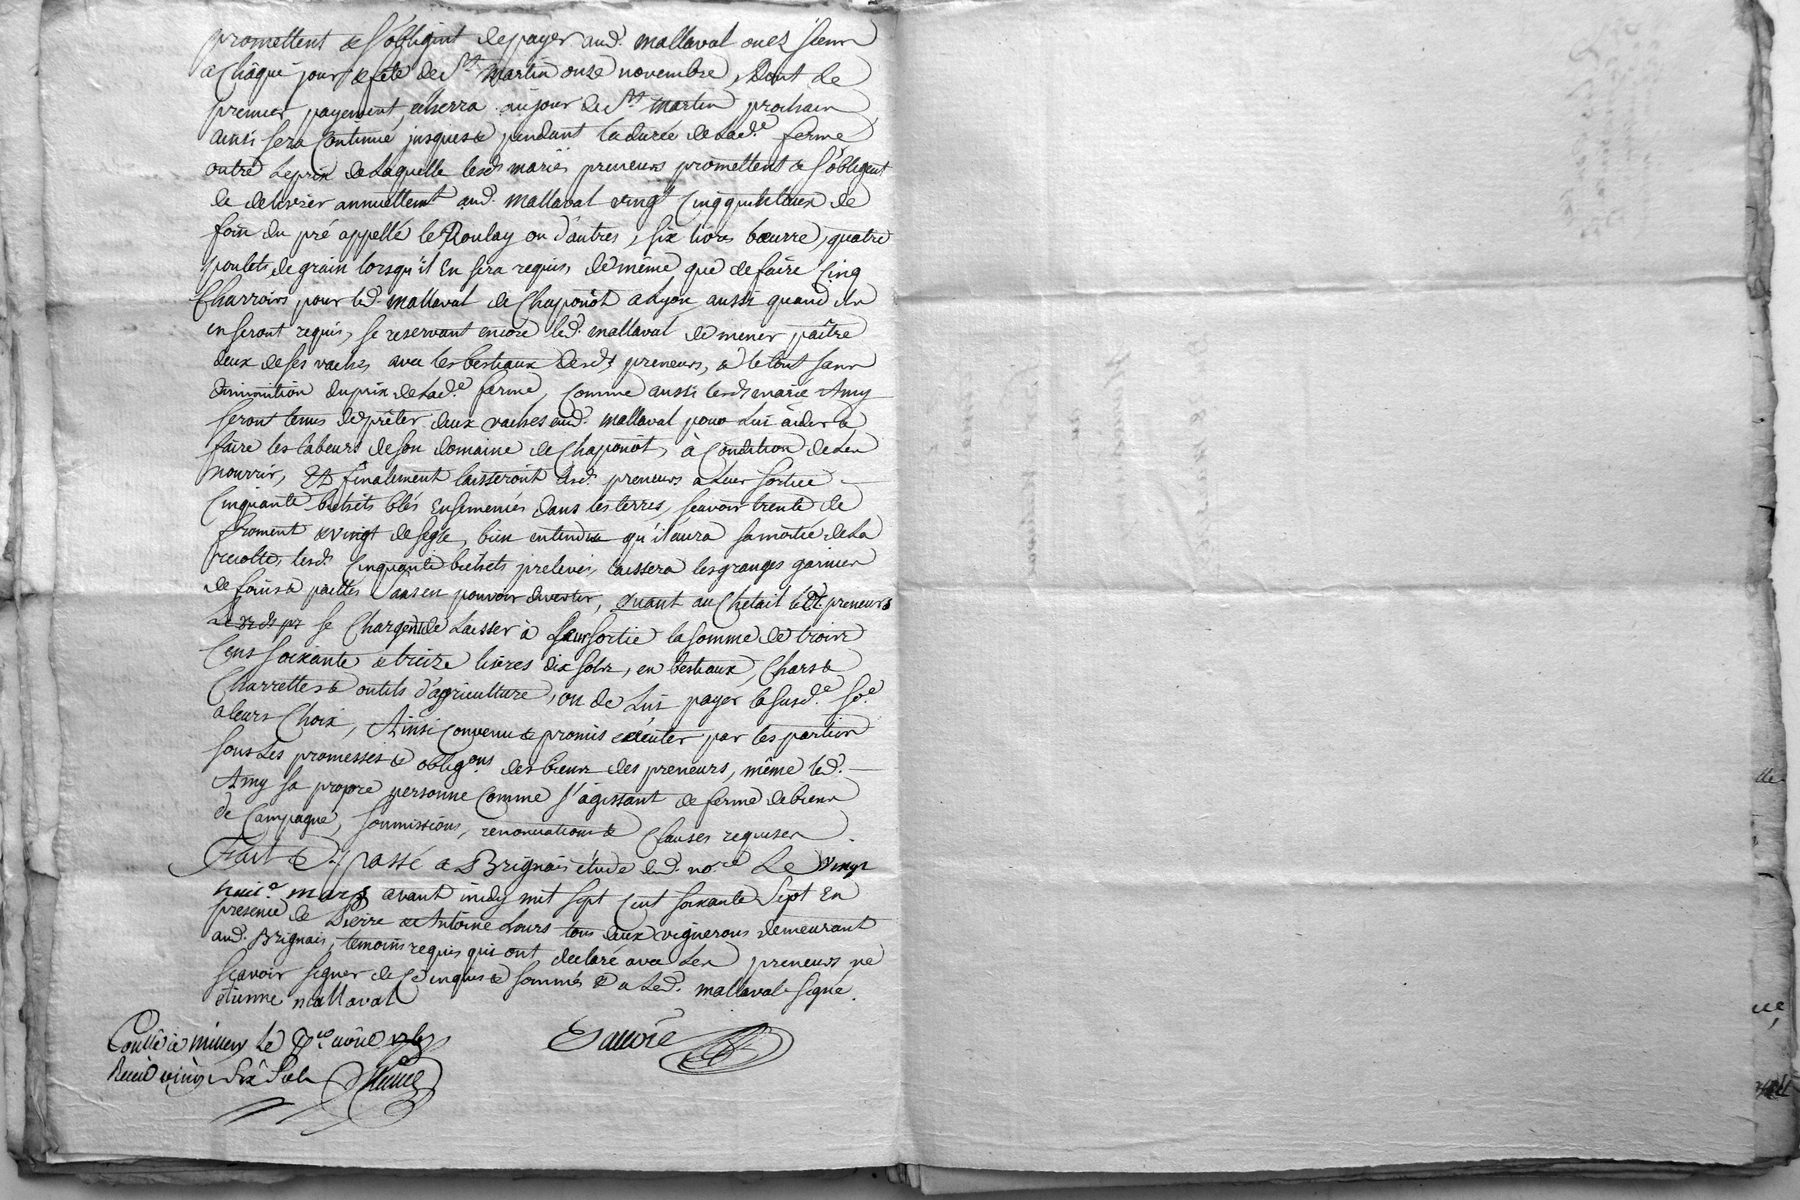 promettent & s'obligent de payer aud. mallaval ou es siens
a Châque jour & fête de St. Martin onze novembre, Dont le
premier payement echerra au jour de St. Martin prochain
ainsi sera Continué jusques & pendant la durée de lad.e ferme
outre le prix de laquelle lesds mariés preneurs promettent & s'obligent
de delivrer annuellemt aud. mallaval vingt Cinq quinteaux de
foin du pré appellé le Roulay ou d'autres, six livres beurre, quatre
poulets de grain lorsqu'il En sera requis, de même que de faire Cinq
Charroirs pour led. mallaval de Chaponôt a Lyon aussi quand ils
en seront requis, se reservant encore led. mallaval de mener paître
deux de ses vaches avec les bestiaux desds preneurs, & le tout sans
diminution du prix de lad.e ferme, Comme aussi lesds mariés Amy
seront tenus de prêter deux vaches aud. mallaval pour Lui aider à
faire les labeurs de son domaine de Chaponôt, à Condition de les
nourrir, Et finalement laisseront lesd. preneurs a Leur sortie
Cinquante bichets blés Ensemencés dans les terres, scavoir trente de
froment & vingt de segle, bien entendu qu'il aura sa moitié de la
recolte, lesd. Cinquante bichets prelevés, laissera les granges garnies
de foins & pailles sans en pouvoir divertir, quant au Chetail les dt. preneurs
se Chargent de Laisser à Leur sortie la somme de trois
Cens soixante & treize livres dix sols, en bestiaux, Chars &
Charrettes & outils d'agriculture, ou de Lui payer la susd.e so.e
a leurs Choix, Ainsi Convenu & promis exécuter par les parties
sous Les promesses & oblig.ons des biens des preneurs, même led.
Amy sa propre personne Comme s'agissant de ferme de biens
de Campagne, soumissions, renonciations & Clauses requises
Fait & passé a Brignais étude dud. no.re Le vingt
huit.e mars avant midy mil sept Cent soixante Sept En
presence de Pierre & Antoine Lours tous deux vignerons demeurant
aud. Brignais, temoins requis qui ont declaré avec Les preneurs ne
scavoir signer de Ce enquis & sommés & a Led. mallaval signé.
étienne mallaval
Conllé à millery le avril
Reçu vingt Six Sols